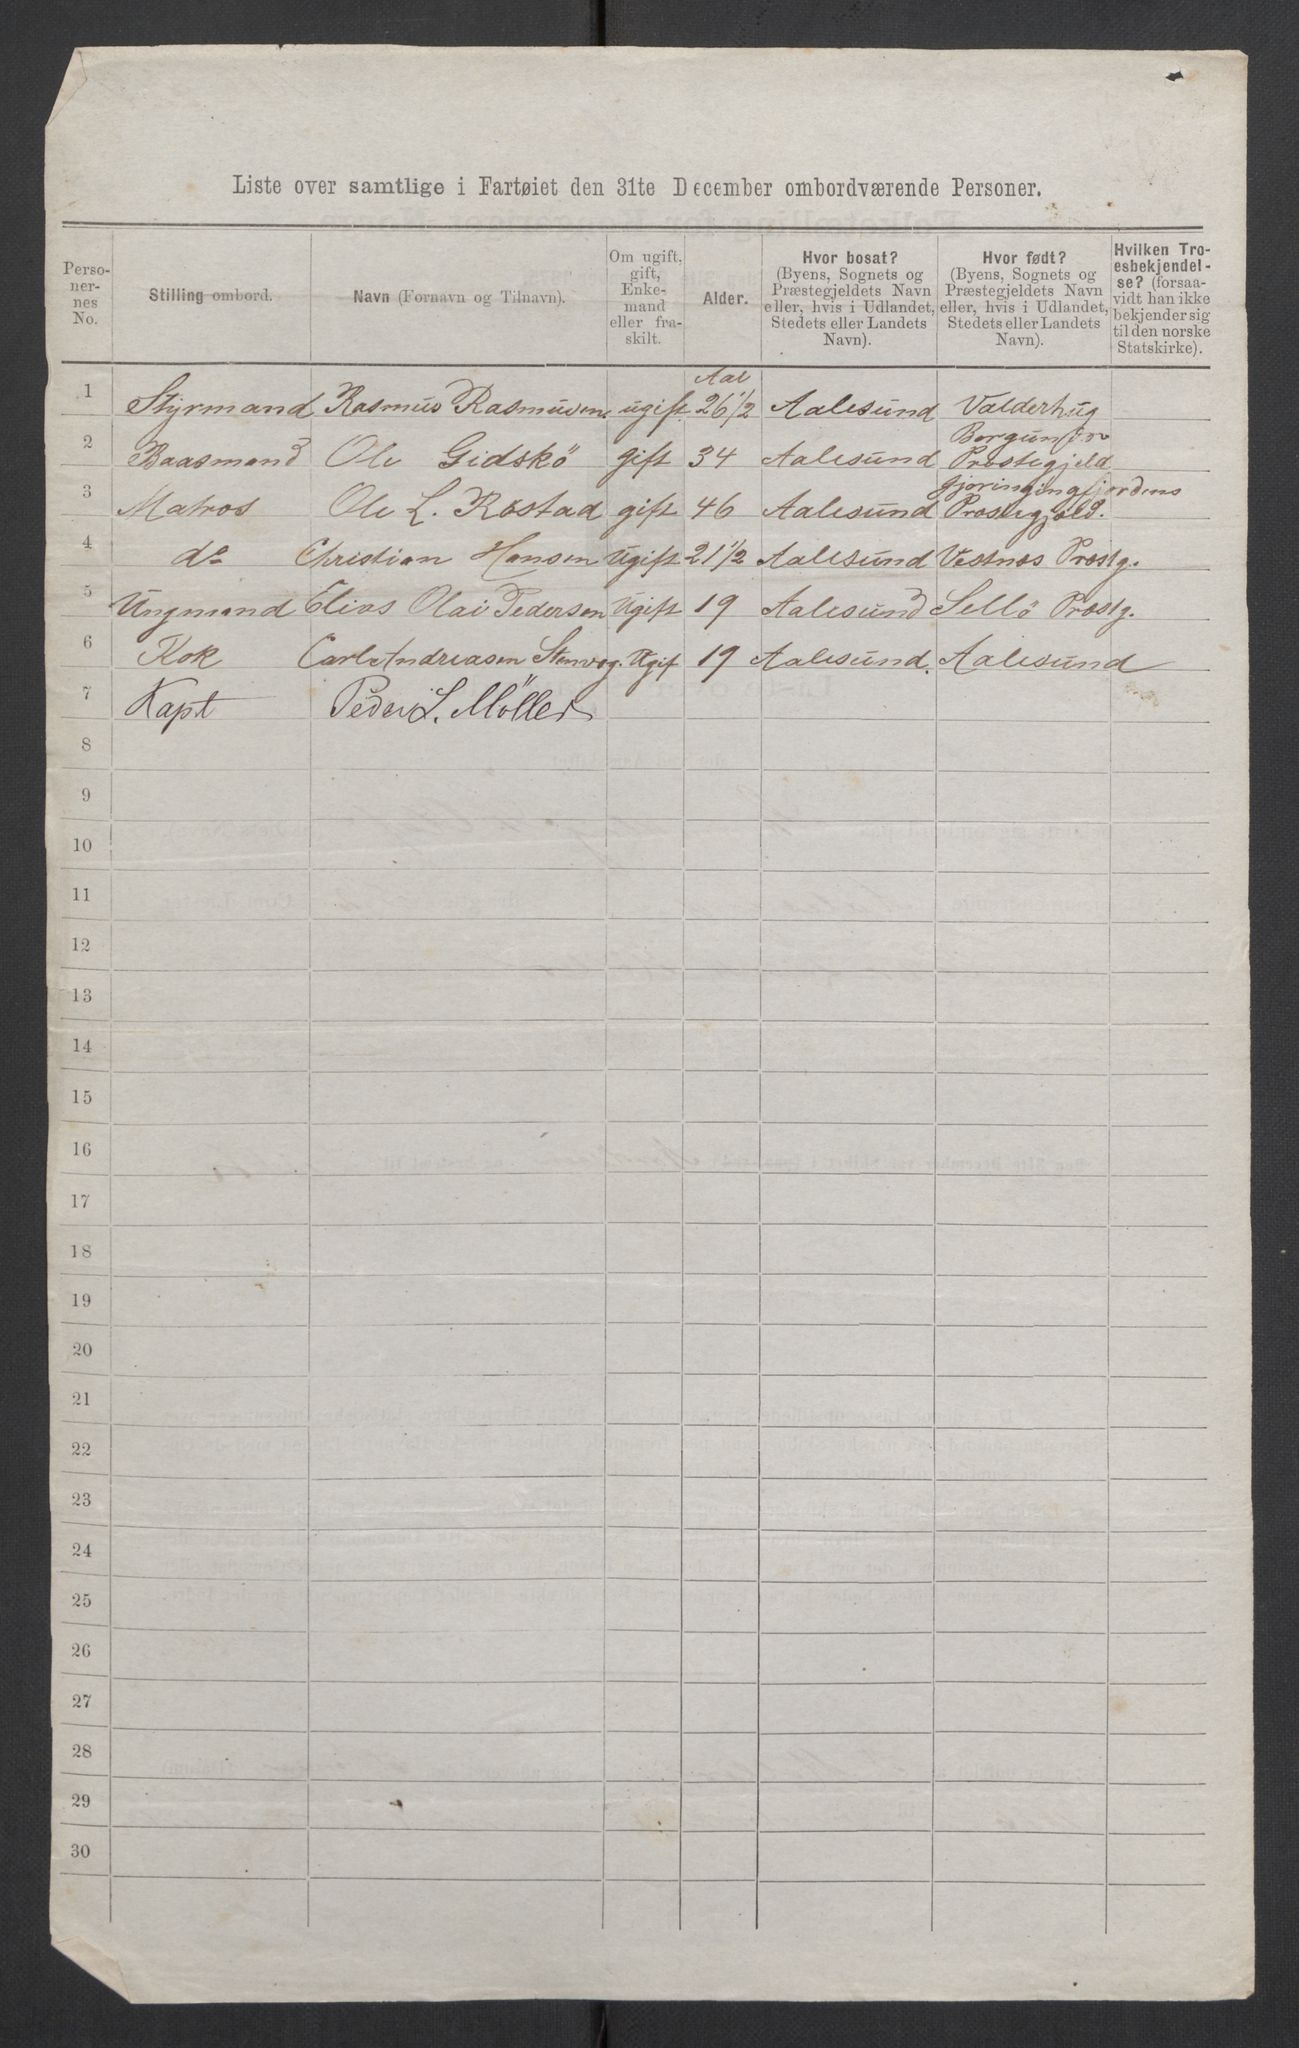 Liste over samtlige i Fartøiet den 31te December ombordværende Personer.
Perso-
ner-
nes
No.
Stilling ombord.
Navn (Fornavn og Tilnavn).
Om ugift,
gift,
Enke-
mand
eller fra-
skilt.
Alder.
Hvor bosat?
(Byens, Sognets og
Præstegjeldets Navn
eller, hvis i Udlandet,
Stedets eller Landets
Navn).
Hvor født?
(Byens, Sognets og
Præstegjeldets Navn
eller, hvis i Udlandet,
Stedets eller Landets
Navn).
Hvilken Tro-
esbekjendel-
se? (forsaa-
vidt han ikke
bekjender sig
til den norske
Statskirke).
Aar
1 Styrmand Rasmus Rasmusen ugift 26 1/2 Aalesund Valderhug
2 Baasmand Ole Gidskö gift 34 Aalesund Prostegjeld
3 Matros Ole L. Rostad gift 46 Aalesund Prostegjeld.
4 do Christian Hansen Ugift 21 1/2 Aalesund Vestnes Prostg.
5 Ungmand Elias Olai Pedersen Ugift 19 Aalesund Sellö Prostg.
6 Kok Carl Andreasen Stenvog. Ugif 19 Aalesund. Aalesund
7 Kapt Peder L. Möller
8
9
10
11
12
13
14
15
16
17
18
19
20
21
22
23
24
25
26
27
28
29
30